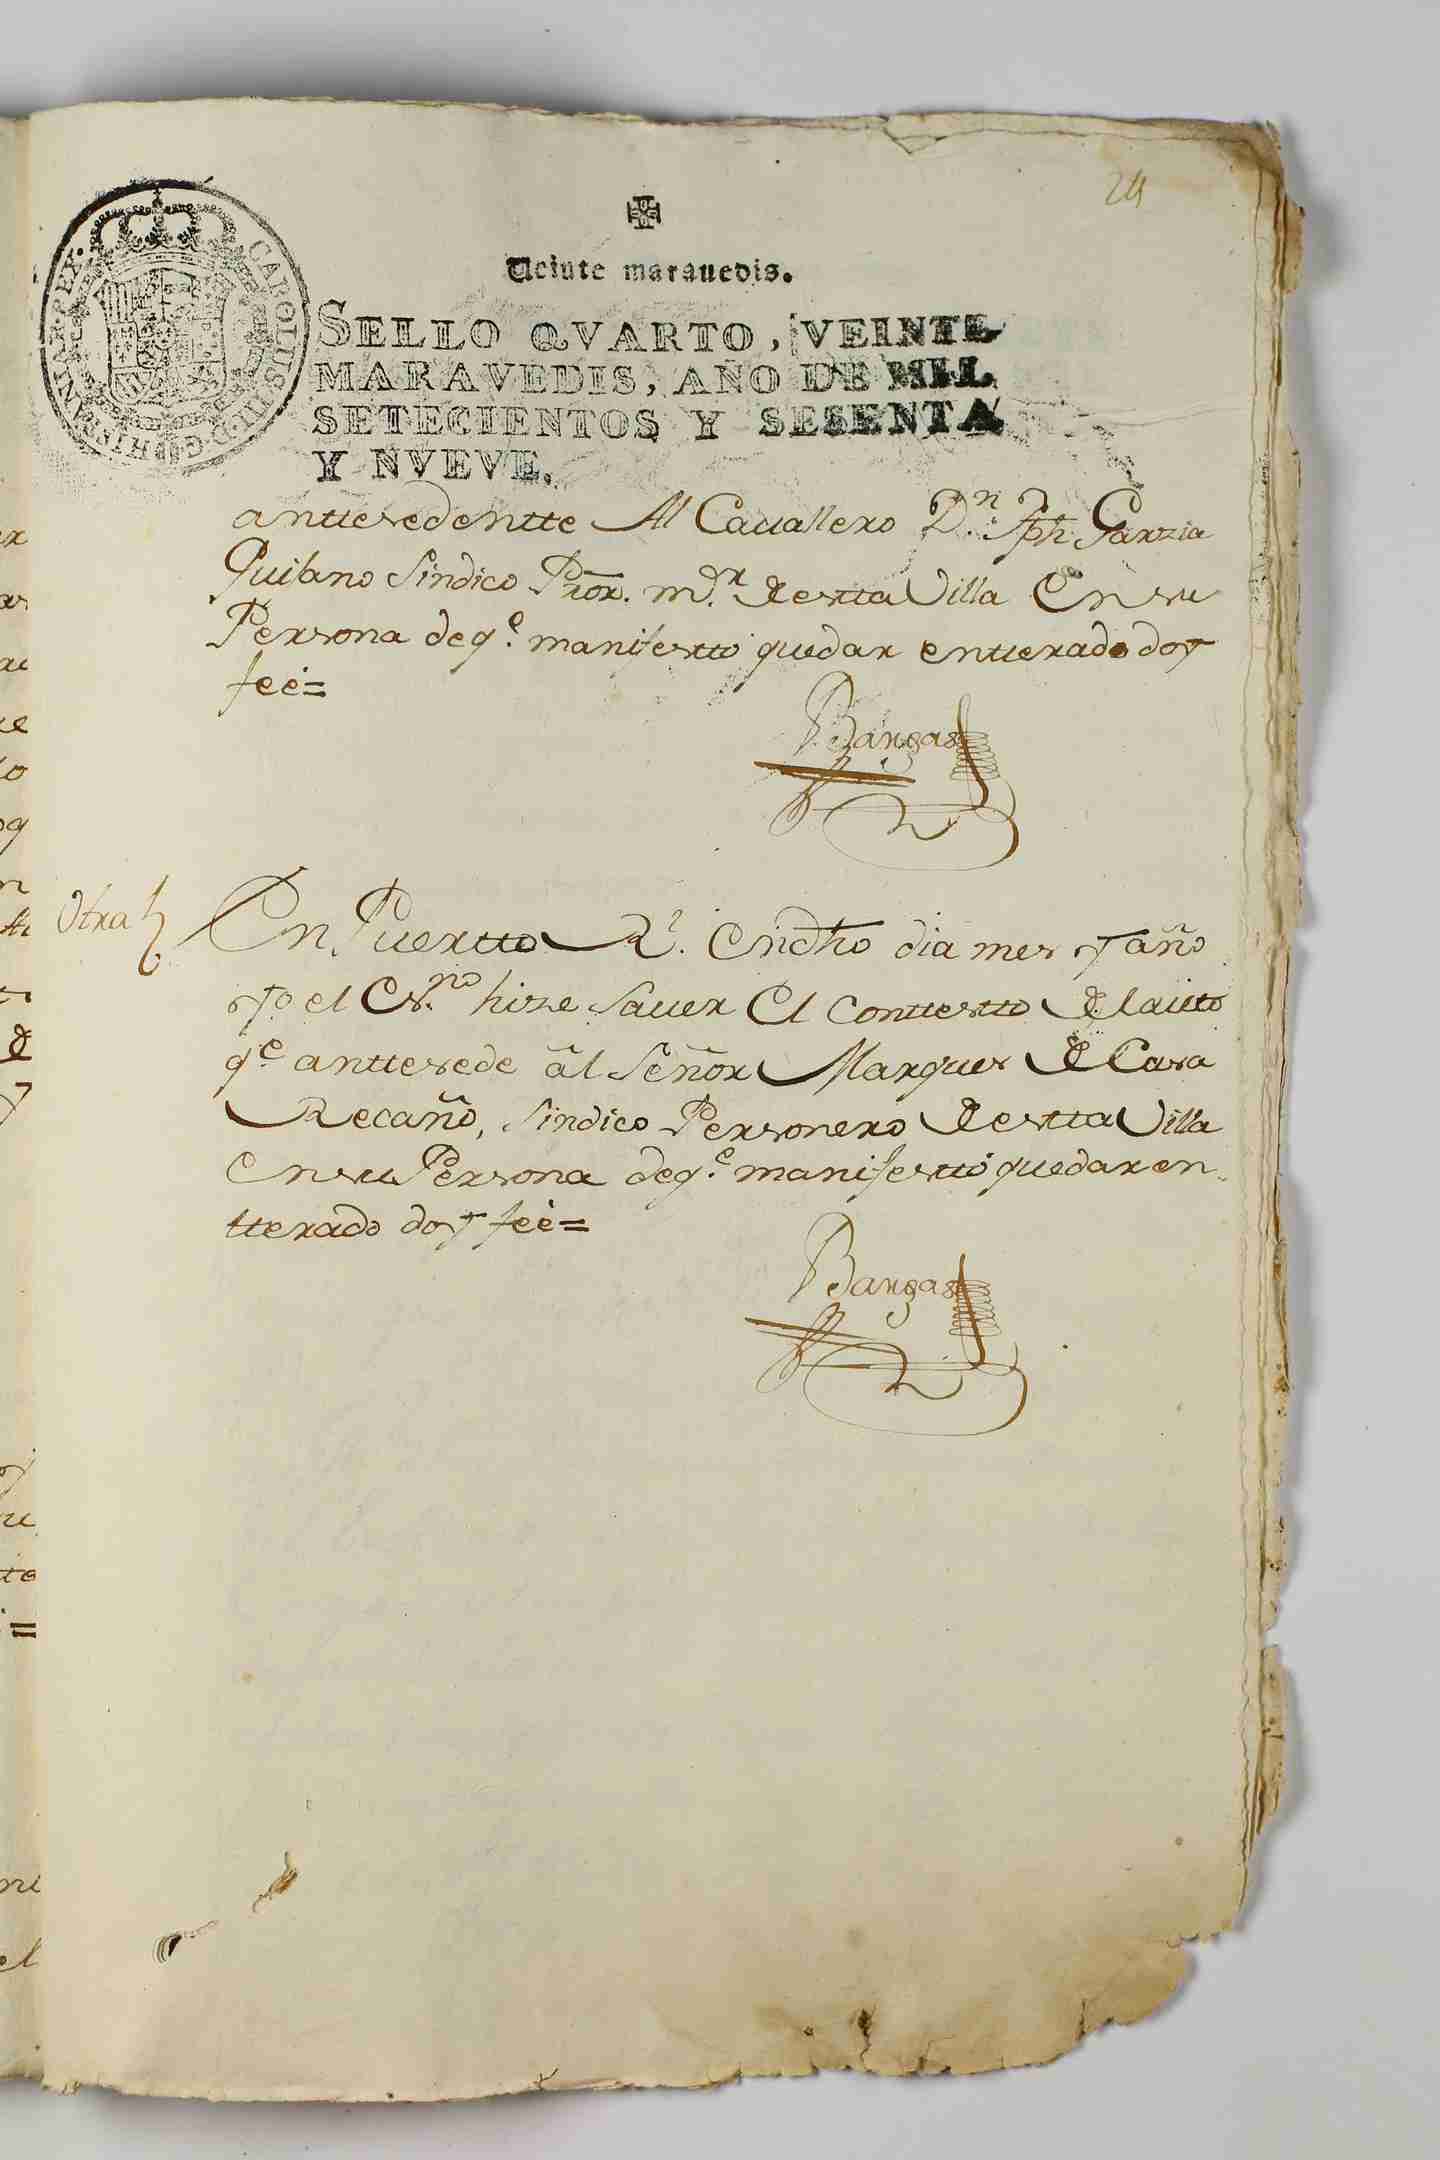 24
Veinte marauedis.
CAROLUS III D G HISPANIAR REX
SELLO QVARTO, VEINTE
MARAVEDIS, AÑO DE MIL
SETECIENTOS Y SESENTA
Y NVEVE.
anttesedentte Al Cauallero Dn. Jph. Garzia
Quijano Sindico Pror. mor. de estta Villa En su
Persona de qe. manifestto quedar entterado doy
feé=
Bargas
Otra
En Puertto Rl. En dho dia mes y año
Yo el Esno. hize sauer El conttestto del autto
qe. anttesede al Señor Marques de Casa
Recaño, Sindico Personero de estta Villa
En su Persona de qe. manifesttó quedar en
tterado doy feé=
Bargas